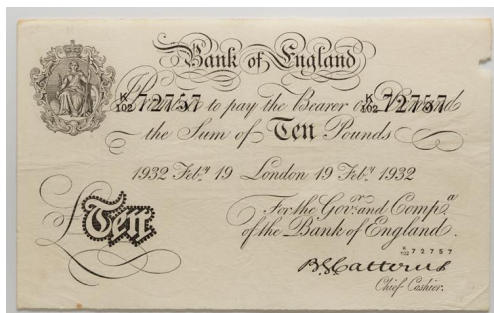 Bank of England
K/102 72757 K/102 72757
Promise to pay the Bearer on Demand
the Sum of Ten Pounds
1932 Feby 19 London 19 Feby 1932
For the Govr and Compa
of the Bank of England.
K/102 72757
£Ten
B.G. Catterns
Chief Cashier.